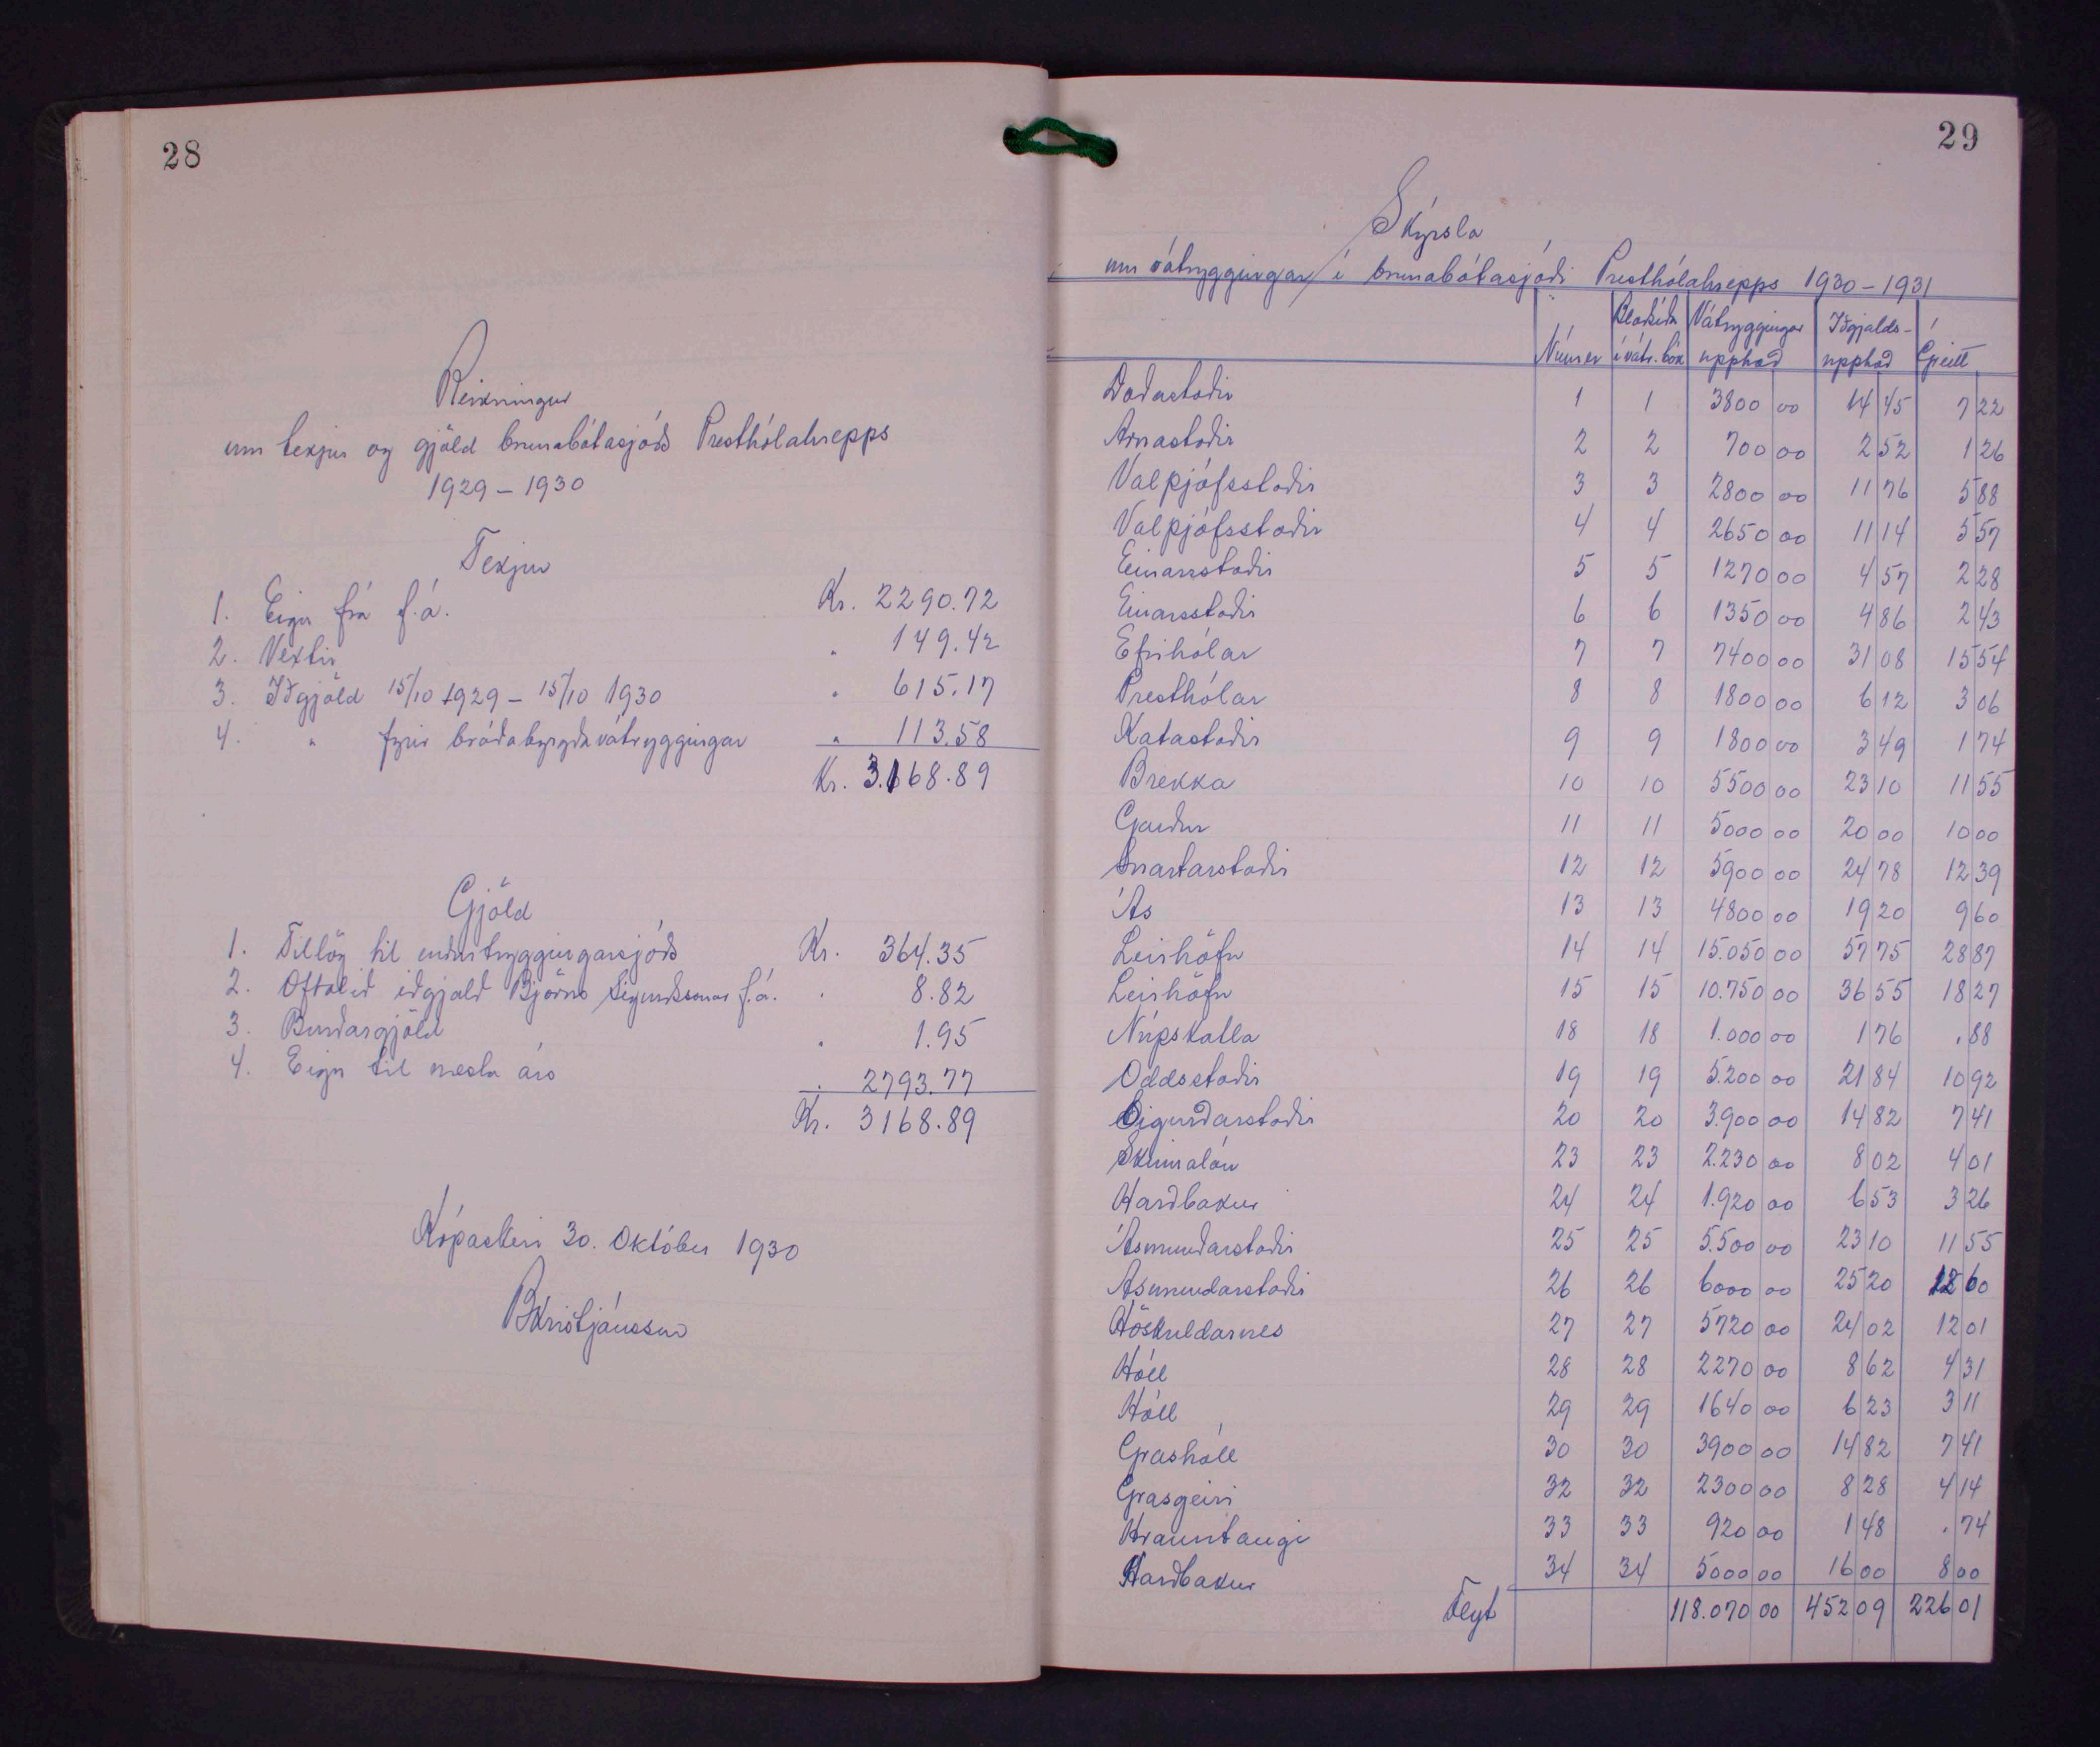 28
Reikningur
um tekjur og gjöld brunabótasjóðs Presthólahrepps
1929 – 1930
Tekjur
1. Eign frá f.á. Kr. 2290.72
2. Vextir " 149.42
3. Iðgjöld 15/10 1929 – 15/10 1930 " 615.17
4. " fyrir bráðabyrgðavátryggingar " 113.58
Kr. 3.168.89
Gjöld
1. Tillög til endurtryggingarsjóðs Kr. 364.35
2. Oftalið iðgjald Björns Sigurðssonar f.á. " 8.82
3. Burðargjöld " 1.95
4. Eign til næsta árs " 2793.77
Kr. 3168.89
Kópaskeri 30. Október 1930
BKristjánsson
29
Skýrsla
um vátryggingar í brunabótasjóði Presthólahrepps 1930 – 1931
Númer Blaðsíða í vátr. bók Vátryggingar upphæð Iðgjalds- upphæð Greitt
Daðastaðir 1 1 3800 00 14 45 7 22
Arnastaðir 2 2 700 00 2 52 1 26
Valþjófsstaðir 3 3 2800 00 11 76 5 88
Valþjófsstaðir 4 4 2650 00 11 14 5 57
Einarsstaðir 5 5 1270 00 4 57 2 28
Einarsstaðir 6 6 1350 00 4 86 2 43
Efrihólar 7 7 7400 00 31 08 15 54
Presthólar 8 8 1800 00 6 12 3 06
Katastaðir 9 9 1800 00 3 49 1 74
Brekka 10 10 5500 00 23 10 11 55
Garður 11 11 5000 00 20 00 10 00
Snartarstaðir 12 12 5900 00 24 78 12 39
Ás 13 13 4800 00 19 20 9 60
Leirhöfn 14 14 15.050 00 57 75 28 87
Leirhöfn 15 15 10.750 00 36 55 18 27
Núpskatla 18 18 1.000 00 1 76 . 88
Oddsstaðir 19 19 5.200 00 21 84 10 92
Sigurðarstaðir 20 20 3.900 00 14 82 7 41
Skinnalón 23 23 2.230 00 8 02 4 01
Harðbakur 24 24 1.920 00 6 53 3 26
Ásmundarstaðir 25 25 5.500 00 23 10 11 55
Ásmundarstaðir 26 26 6000 00 25 20 12 60
Höskuldarnes 27 27 5720 00 24 02 12 01
Hóll 28 28 2270 00 8 62 4 31
Hóll 29 29 1640 00 6 23 3 11
Grashóll 30 30 3900 00 14 82 7 41
Grasgeiri 32 32 2300 00 8 28 4 14
Hrauntangi 33 33 920 00 1 48 . 74
Harðbakur 34 34 5000 00 16 00 8 00
Flyt 118.070 00 452 09 226 01